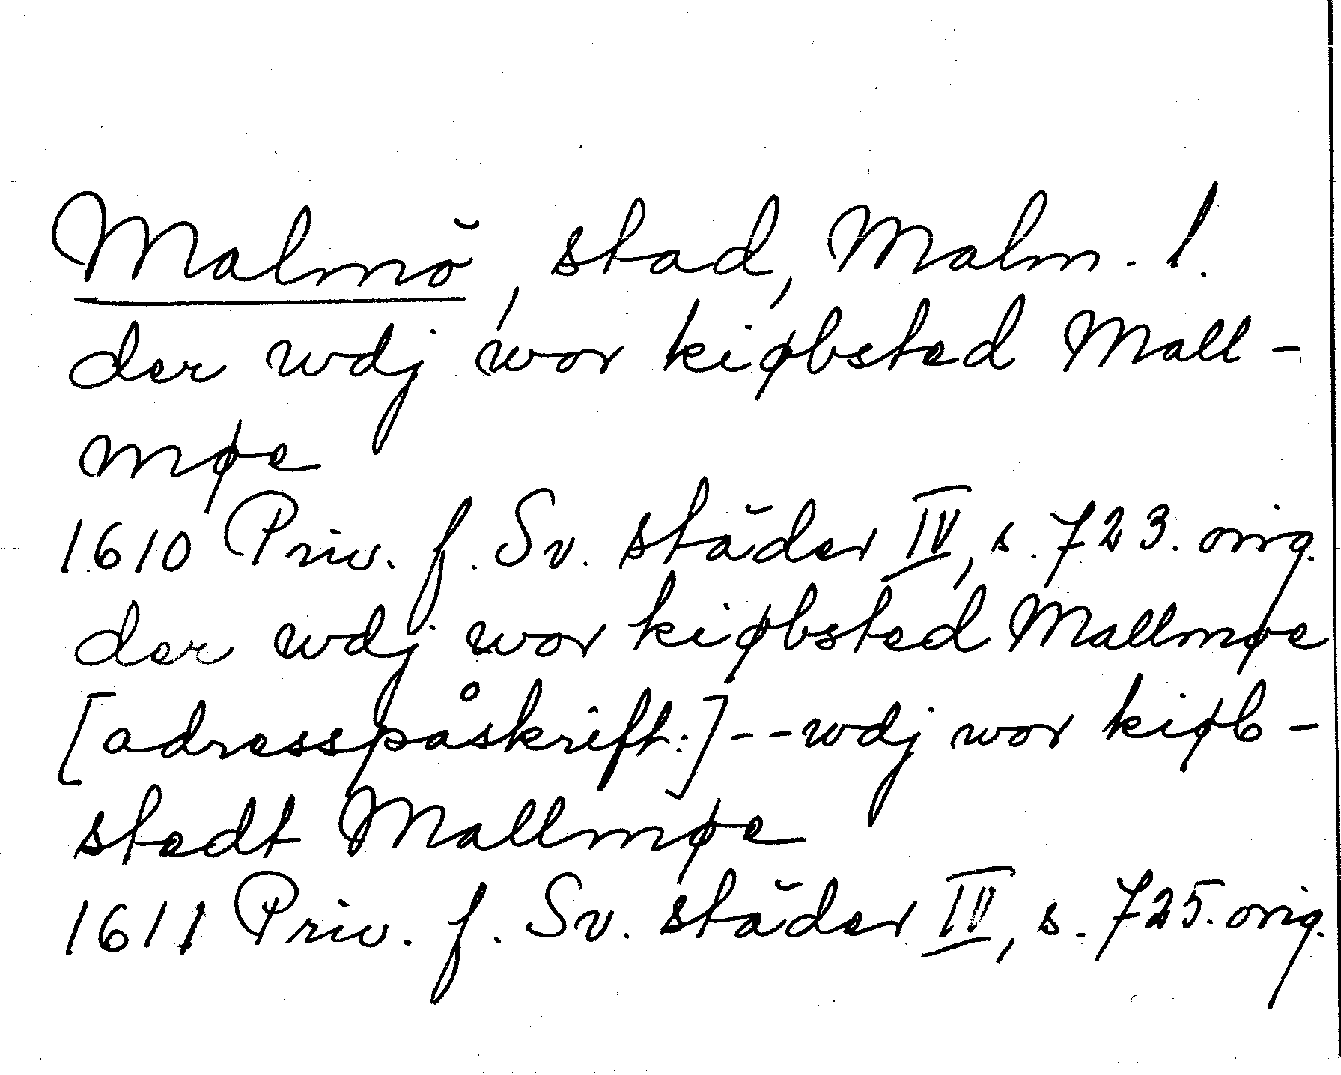 Malmö, stad, Malm. l.
der wdj wor kiøbsted Mall-
møe
1610 Priv. f. Sv. städer IV, s. 723. orig.
der wdj wor kiøbsted Mallmøe
[adresspåskrift:] -- wdj wor kiøb-
stedt Mallmøe
1611 Priv. f. Sv. städer IV, s. 725. orig.